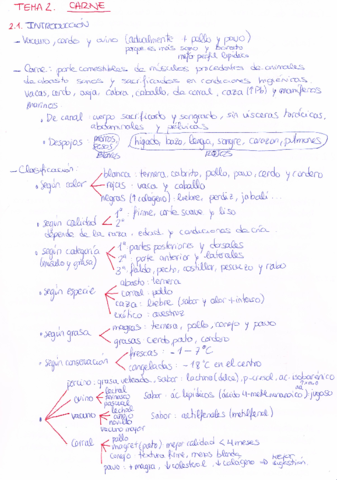 TEMA 2. CARNE
2.1. INTRODUCCIÓN
- Vacuno, cerdo y ovino (actualmente + pollo y pavo)
porque es más sano y barato
mejor perfil lipídico
- Carne: parte comestible de músculos procedentes de animales
de abasto sanos y sacrificados en condiciones higiénicas
vacas, cerdo, oveja, cabra, caballo, de corral, caza (↑Pb) y mamíferos
marinos
- De canal: cuerpo sacrificado y sangrado, sin vísceras torácicas,
abdominales y pélvicas
- Despojos
hígado, bazo, lengua, sangre, corazón, pulmones
ROJOS
- Clasificación:
• según color
blanca: ternera, cabrito, pollo, pavo, cerdo y cordero
rojas: vaca y caballo
negras (↑colágeno): liebre, perdiz, jabalí...
• según calidad
1ª: firme, corte suave y liso
2ª
depende de la raza, edad y condiciones de cría
• según categoría
(músculo y grasa)
1ª: partes posteriores y dorsales
2ª: parte anterior y laterales
3ª: falda, pecho, costillar, pescuezo y rabo
• según especie
abasto: ternera
corral: pollo
caza: liebre (sabor y olor + intenso)
exótica: avestruz
• según grasa
magras: ternera, pollo, conejo y pavo
grasas: cerdo, pato, cordero
• según conservación
frescas: -1 - 7ºC
congeladas: -18ºC en el centro
porcino: grasa veteada. sabor: lactona (dulce), p-cresol, ac. isobutírico
ovino
lechal
ternasco
pascual
sabor: ác. lipídicos (ácido 4-metilnonanoico) jugoso
vacuno
lechal
añejo
novillo
vacuno mayor
sabor: metilfenoles (metilfenol)
corral
pollo
magret (pato) mejor calidad < 4 meses
conejo textura firme, menos blanda,
pavo: + magra, ↓colesterol, ↓colágeno → mejor
digestión.